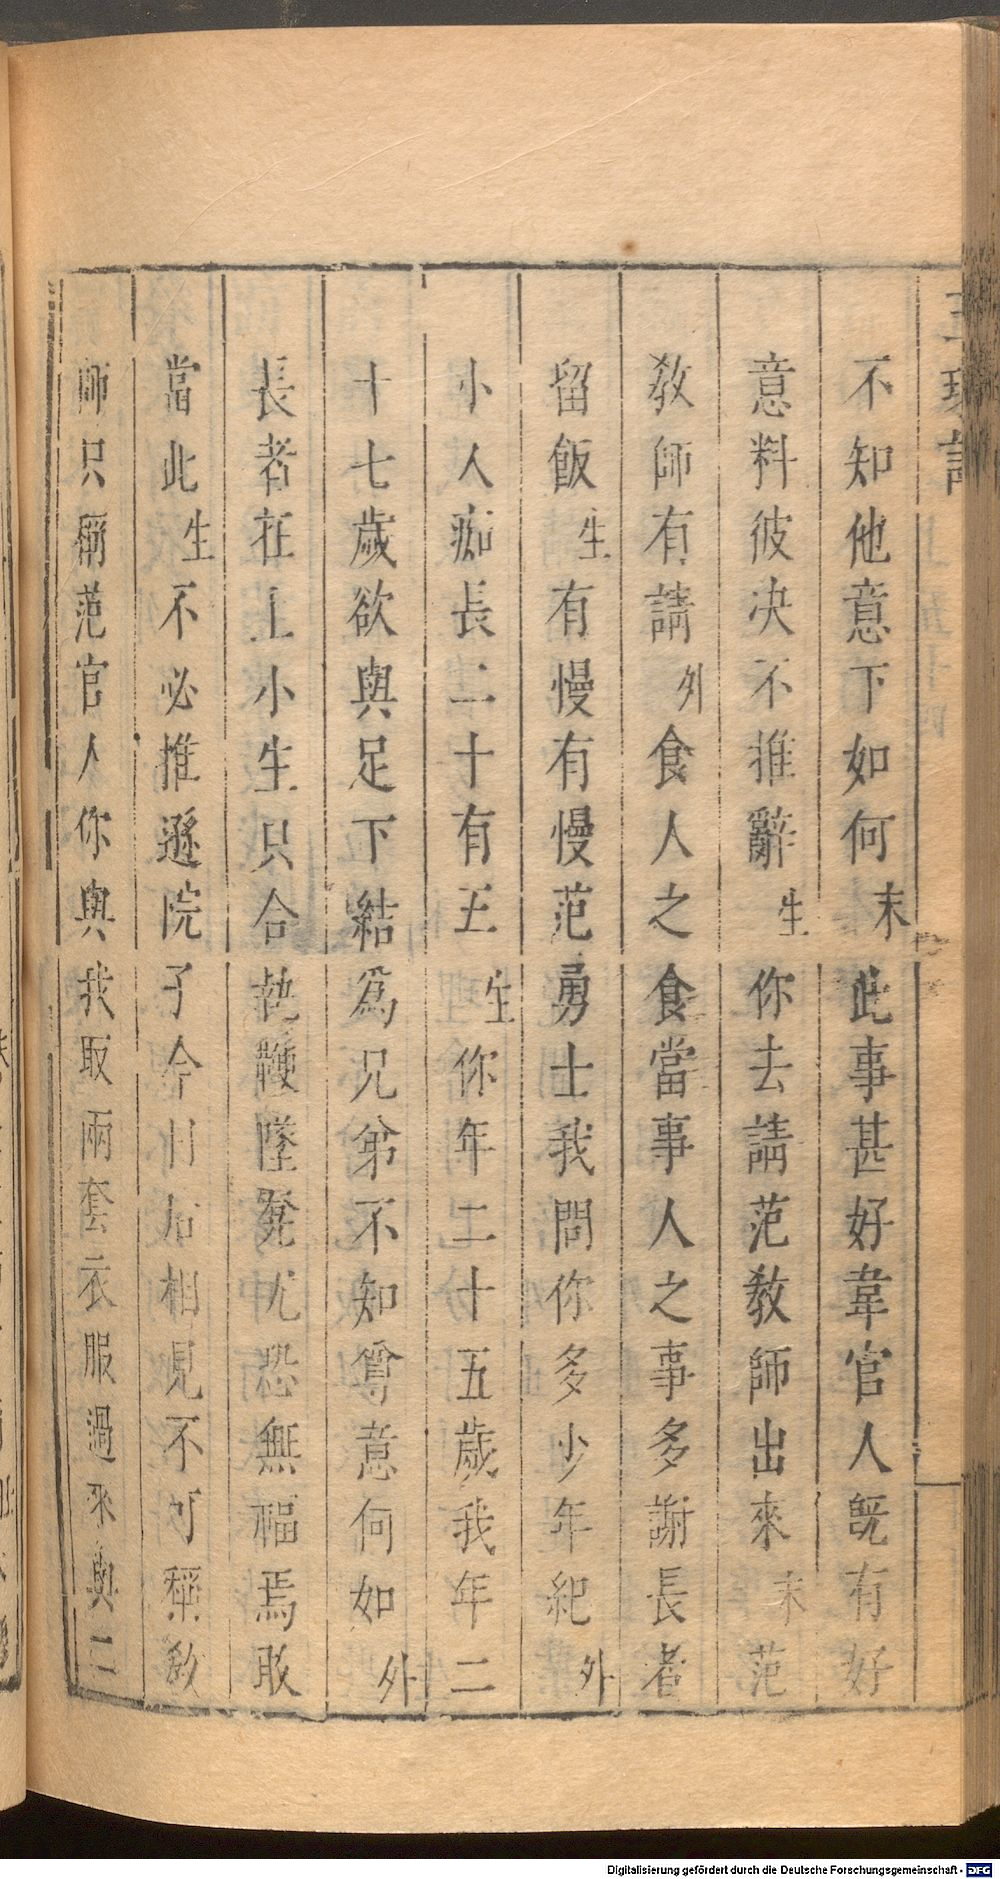 不知他意下如何末此事甚好韋官人旣有好
意料彼决不推辭生你去請范教師出來末范
教師有請外食人之食當事人之事多謝長者
留飯生有慢有慢范勇士我問你多少年紀外
小人痴長二十有五生你年二十五歲我年二
十七歲欲與足下結爲兄弟不知尊意何如外
長者在上小生只合執鞭墜凳尤恐無福焉敢
當此生不必推遜院子今後相見不可稱教
師只稱范官人你與我取兩套衣服過來與二
Digitalisierung gefördert durch die Deutsche Forschungsgemeinschaft - DFG